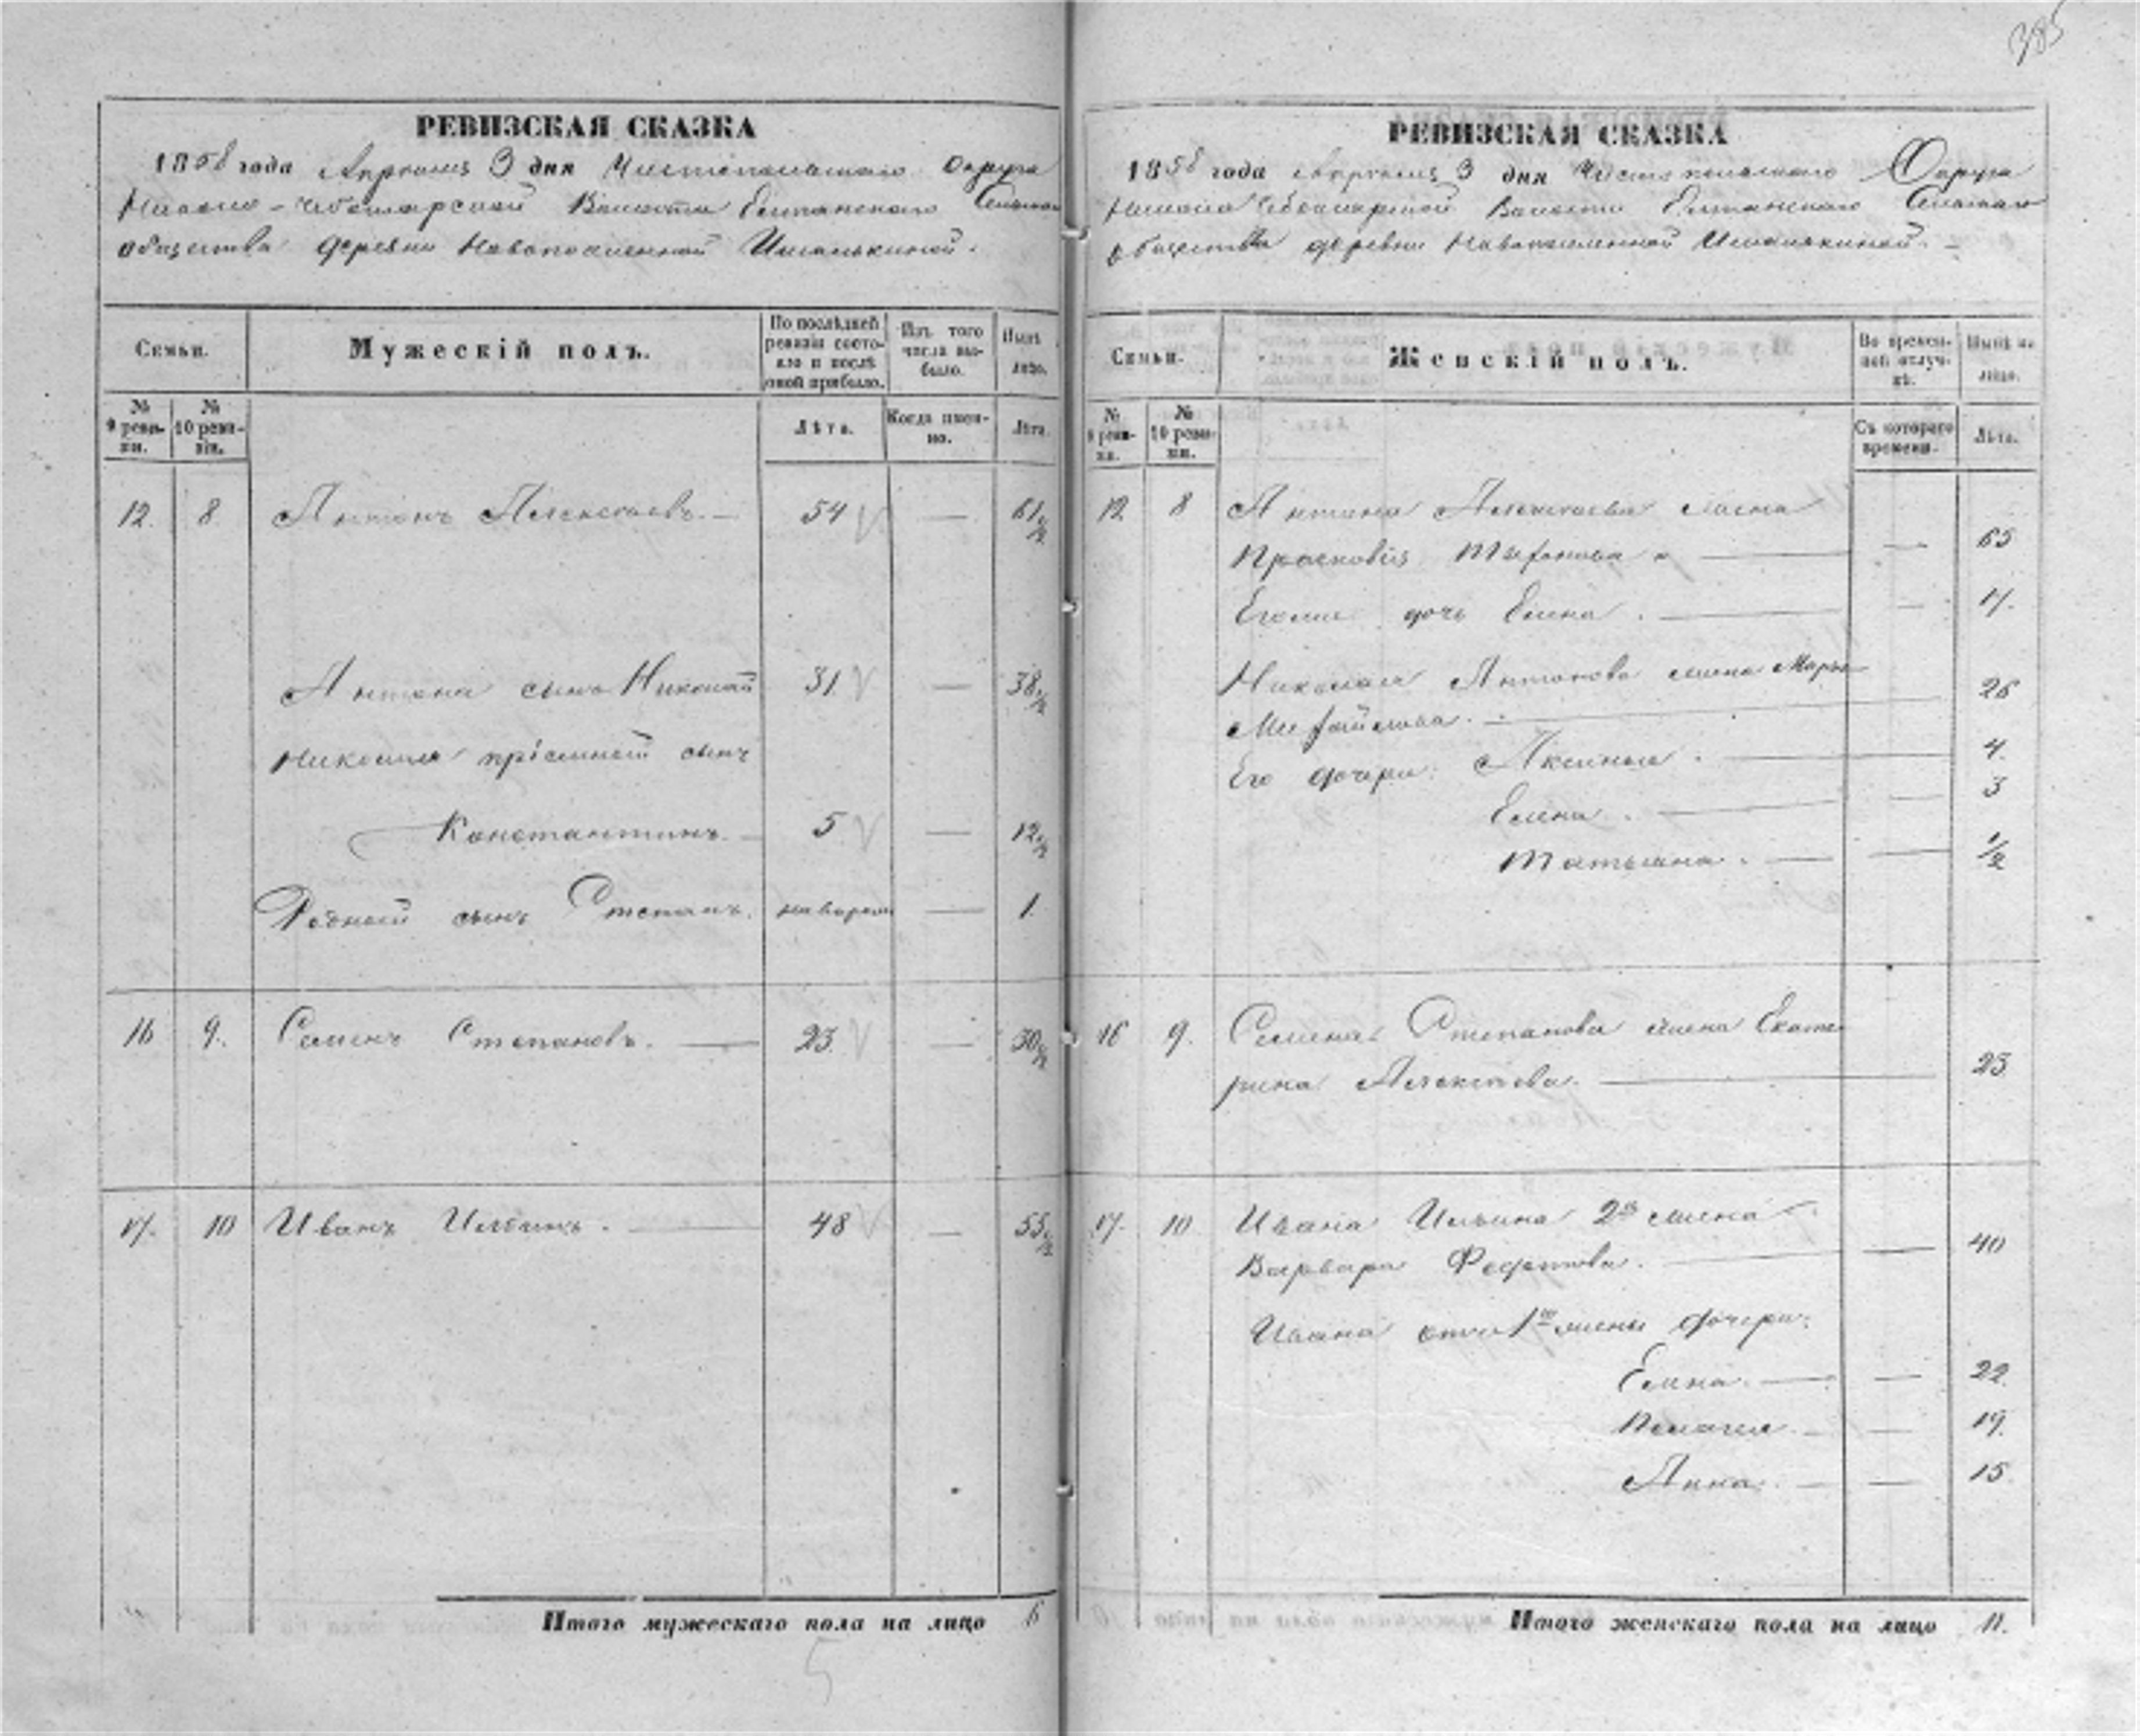 385
РЕВИЗСКАЯ СКАЗКА
1858 года Апреля 3 дня Чистопольскаго Округа
Волости Елтанскаго
общества деревни Новопоселенной Ишалькиной.
Семьи.
Мужескій полъ.
По послѣдней ревизіи состояло и послѣ оной прибыло.
Изъ того числа выбыло.
Нынѣ на лицо.
№ 9 ревизіи.
№ 10 ревизіи.
Лѣта.
Когда именно.
Лѣта.
12. 8 Антонъ Алексѣевъ. — 54 — 61 1/2
Антона сынъ Николай 31 — 38 1/2
Николая пріемный сынъ
Константинъ. — 5 — 12 1/2
Родный сынъ Степанъ. — 1.
16 9. Семенъ Степановъ. — 23. — 30 1/2
17. 10 Иванъ Ильинъ. — 48 — 55 1/2
Итого мужескаго пола на лицо 6
5
РЕВИЗСКАЯ СКАЗКА
1858 года Апреля 3 дня Чистопольскаго Округа
Волости Елтанскаго
общества деревни Новопоселенной Ишалькиной. —
Семьи.
Женскій полъ.
Во временной отлучкѣ.
Нынѣ на лицо.
№ 9 ревизіи.
№ 10 ревизіи.
Съ котораго времени.
Лѣта.
12 8 Антона Алексѣева жена
Прасковья — — 65
дочь Елена. — — 17.
Николая Антонова жена Марья
— 26
Его дочери: Аксинья. — 4.
Елена. — — 3
Татьяна. — — 1/2
16 9. Семена Степанова жена Екате
рина Алексѣева. — 23
17. 10 Ивана Ильина 2я жена
Варвара Федотова. — — 40
Ивана отъ 1й жены дочери:
Елена. — — 22.
Пелагея. — — 19.
Анна. — — 15.
Итого женскаго пола на лицо 11.